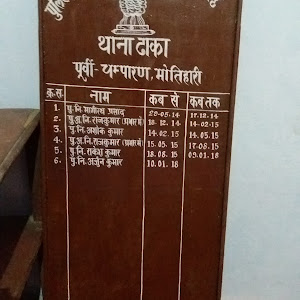 थाना ढाका
पूर्वी-चम्पारण, मोतिहारी
क्र.सं. नाम कब से कब तक
1. पु.नि. प्रसाद 28-05-14 17-12-14
2. पु.अ.नि.राजकुमार (प्रभार में) 18-12-14 14-02-15
3. पु.नि.अशोक कुमार 14.02.15 14.05.15
4. पु.अ.नि.राजकुमार (प्रभार में) 15.05.15 17-08-15
5. पु.नि.राकेश कुमार 18.08.15 09.01.18
6. पु.नि.अर्जुन कुमार 10.01.18